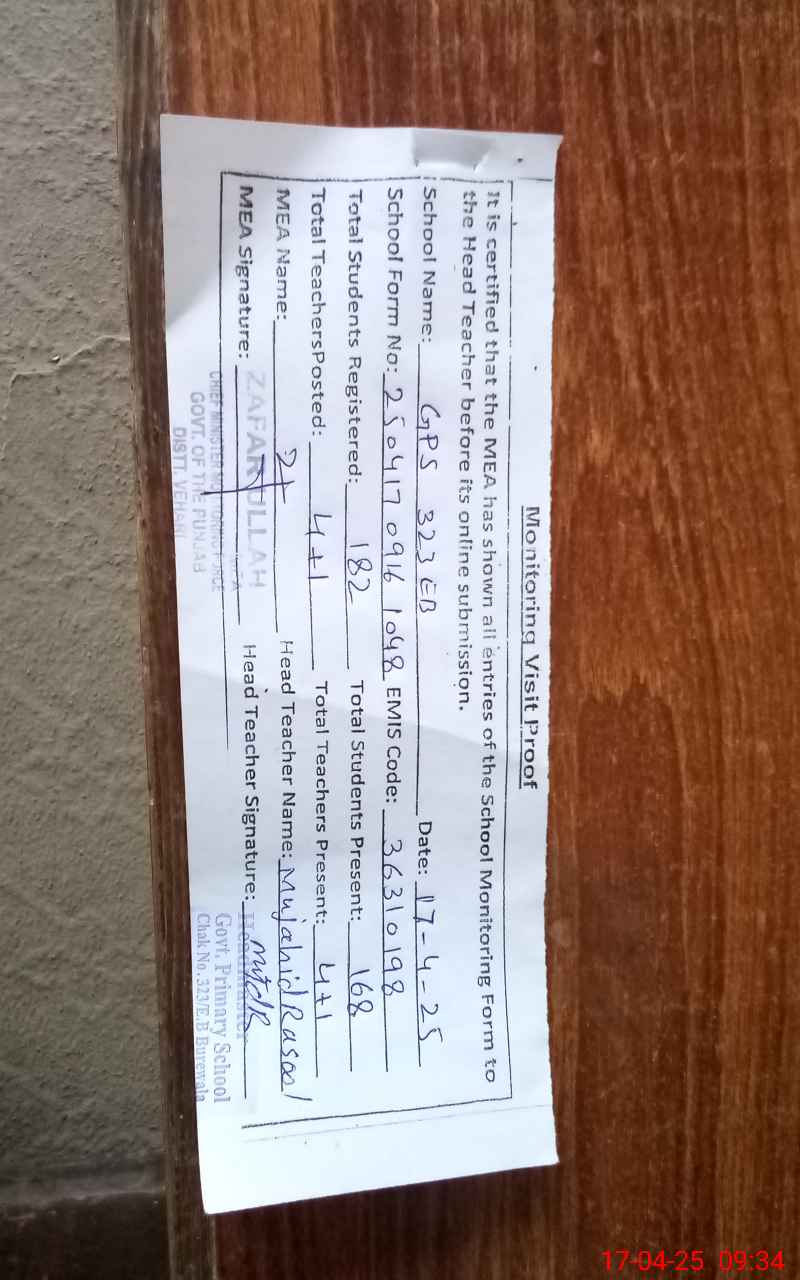 Monitoring Visit Proof
It is certified that the MEA has shown all entries of the School Monitoring Form to
the Head Teacher before its online submission.
School Name: GPS 323 EB Date: 17-4-25
School Form No: 2504170916 1048 EMIS Code: 36310198
Total Students Registered: 182 Total Students Present: 168
Total TeachersPosted: 4+1 Total Teachers Present: 4+1
MEA Name: Head Teacher Name: Mujahid Rasool
MEA Signature: Head Teacher Signature:
ZAFAR ULLAH
CHIEF MINISTER MONITORING FORCE
GOVT. OF THE PUNJAB
DISTT. VEHARI
Headmaster
Govt. Primary School
Chak No. 323/E.B Burewala
17-04-25 09:34